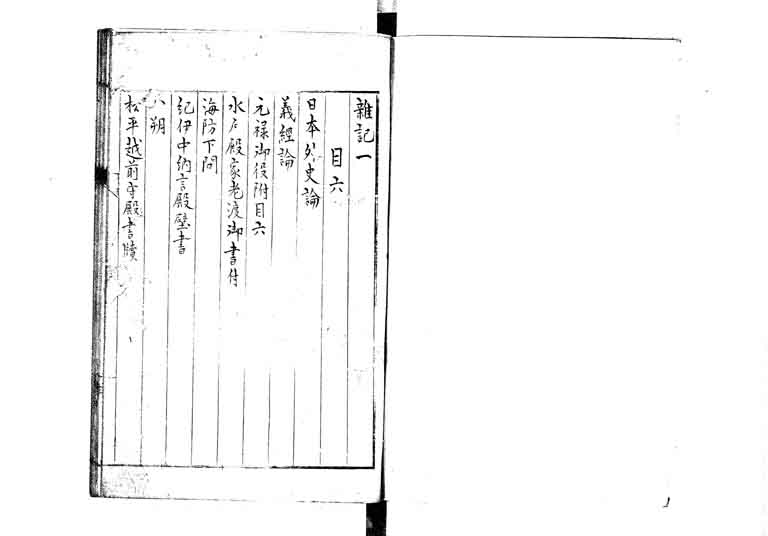 雜記一
目六
日本外史論
義經論
元禄御役附目六
水戸殿家老渡御書付
海防下問
紀伊中納言殿壁書
八朔
松平越前守殿書牘